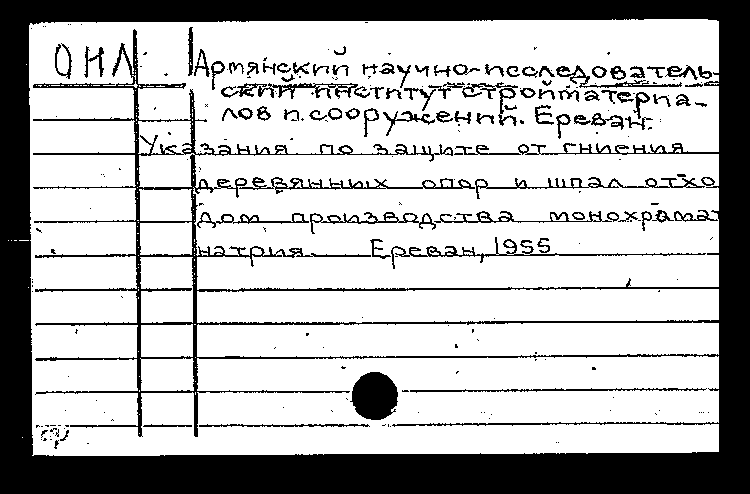 ОНЛ
Армянский научно-исследователь-
ский институт стройматериа-
лов и сооружений. Ереван.
Указания по защите от гниения
деревянных опор и шпал отхо
дом производства монохрамат
натрия. Ереван, 1955